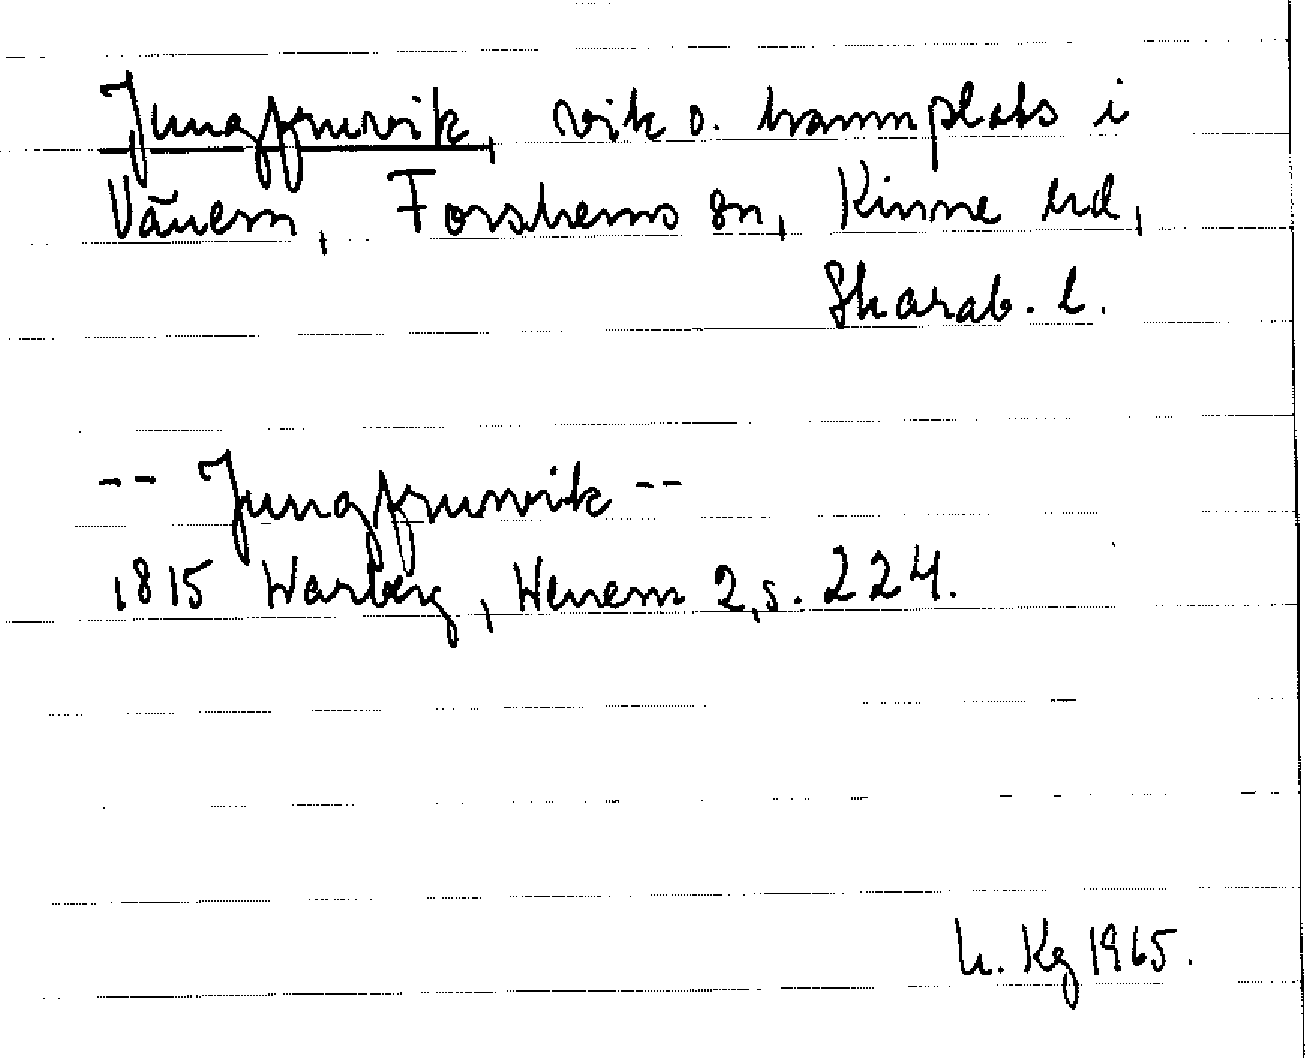 Jungfruvik, vik o. hamnplats i
Vänern, Forshems sn, Kinne hd,
Skarab. l.
-- Jungfruvik --
1815 Warberg, Wenern 2, s. 224.
h. Kg 1965.